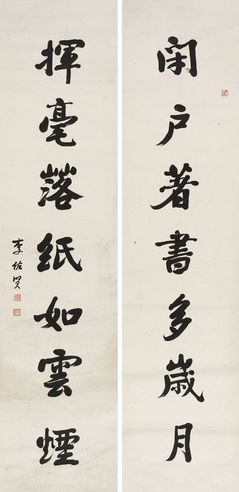 閉戶著書多歲月
揮毫落紙如雲煙
李佐賢